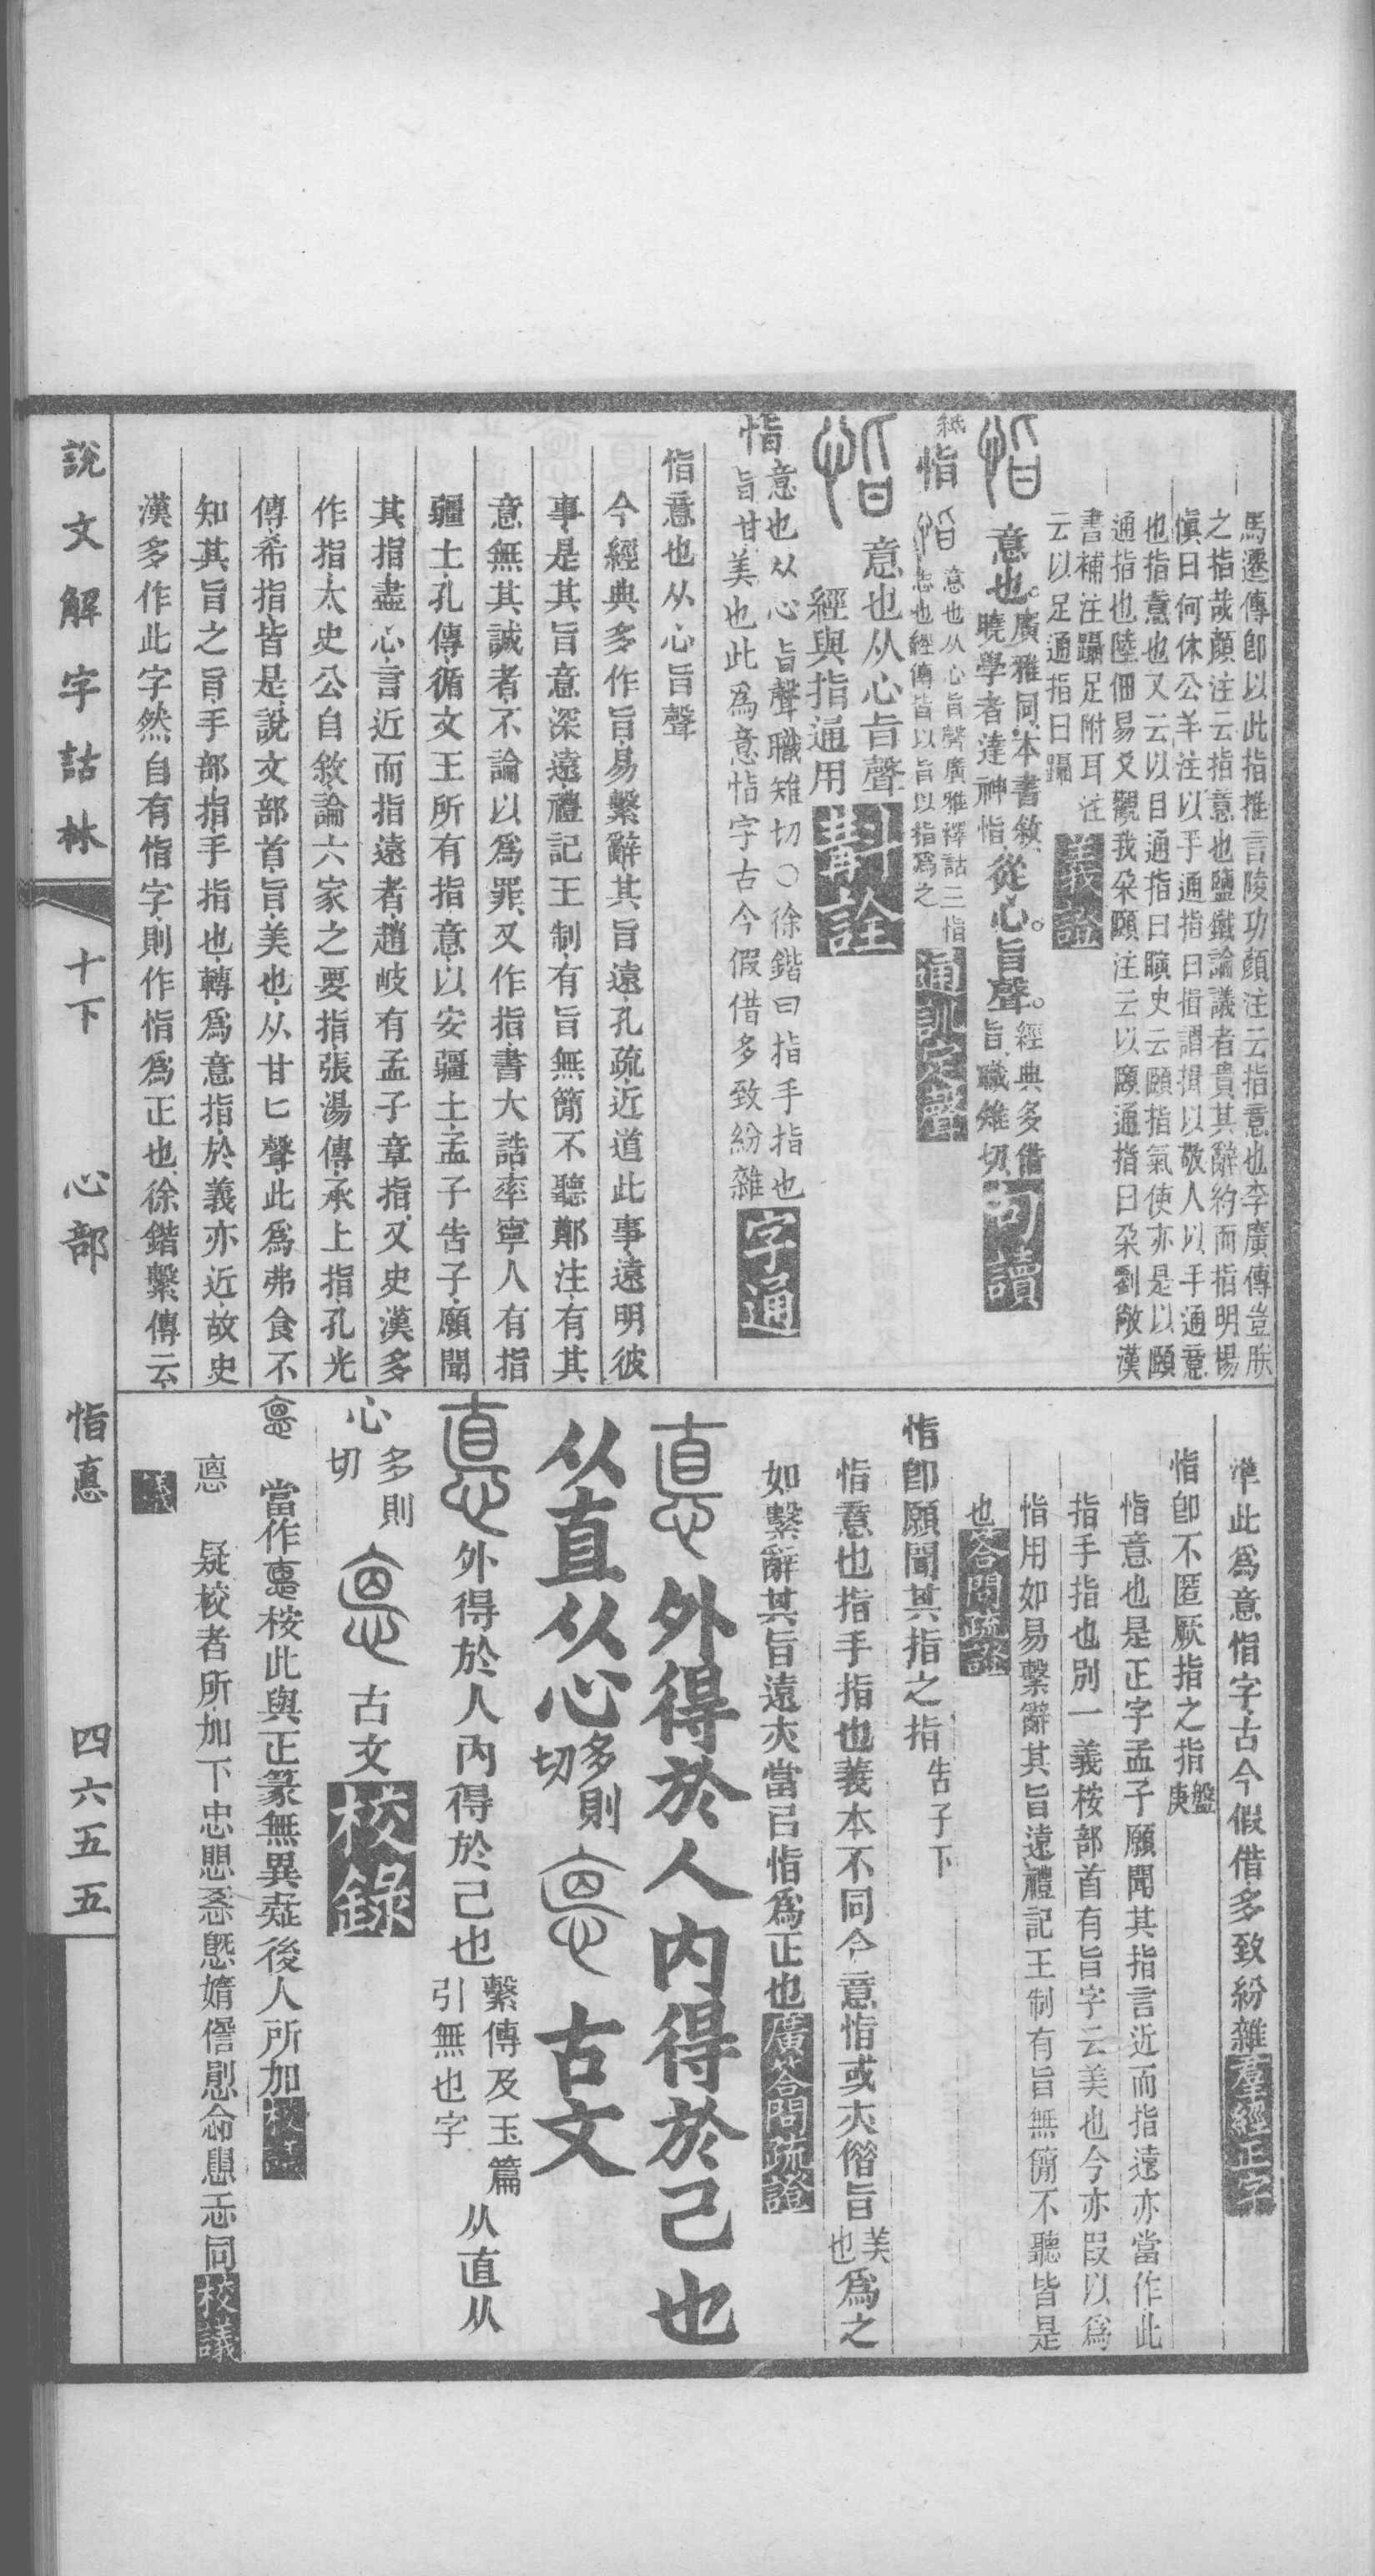 馬遷傳卽以此指推言陵功顏注云指意也李廣傳豈朕
之指哉顏注云指意也鹽鐵論議者貴其辭約而指明楊
愼曰何休公羊注以手通指曰揖謂揖以敬人以手通意
也指意也又云以目通指曰瞚史云頤指氣使亦是以頤
通指也陸佃易爻觀我朶頤注云以頤通指曰朶劉敞漢
書補注躡足附耳注
云以足通指曰躡
義證
意也。廣雅同本書敘
曉學者達神恉
從心。旨聲。經典多借
旨職雉切
句讀
恉
意也从心旨聲廣雅釋詁三指
志也經傳皆以旨以指爲之
通訓定聲
意也从心旨聲
經與指通用
斠詮
恉
意也从心旨聲職雉切〇徐鍇曰指手指也
旨甘美也此爲意恉字古今假借多致紛雜
字通
恉意也从心旨聲
今經典多作旨易繫辭其旨遠孔疏近道此事遠明彼
事是其旨意深遠禮記王制有旨無簡不聽鄭注有其
意無其誠者不論以爲罪又作指書大誥率寧人有指
疆土孔傳循文王所有指意以安疆土孟子告子願聞
其指盡心言近而指遠者趙岐有孟子章指又史漢多
作指太史公自敘論六家之要指張湯傳承上指孔光
傳希指皆是說文部首旨美也从甘匕聲此爲弗食不
知其旨之旨手部指手指也轉爲意指於義亦近故史
漢多作此字然自有恉字則作恉爲正也徐鍇繫傳云
準此爲意恉字古今假借多致紛雜
羣經正字
恉卽不匿厥指之指盤庚
恉意也是正字孟子願聞其指言近而指遠亦當作此
指手指也別一義桉部首有旨字云美也今亦叚以爲
恉用如易繫辭其旨遠禮記王制有旨無簡不聽皆是
也
答問疏證
恉卽願聞其指之指告子下
恉意也指手指也義本不同今意恉或夾偺旨美也爲之
如繫辭其旨遠夾當㠯恉爲正也
廣答問疏證
外得於人內得於己也
从直从心多則切
古文
外得於人內得於己也
繫傳及玉篇
引無也字
从直从
心多則切
古文
校錄
當作悳桉此與正篆無異疑後人所加
疑校者所加下忠
同
校議
說文解字詁林
十下
心部
恉悳
四六五五